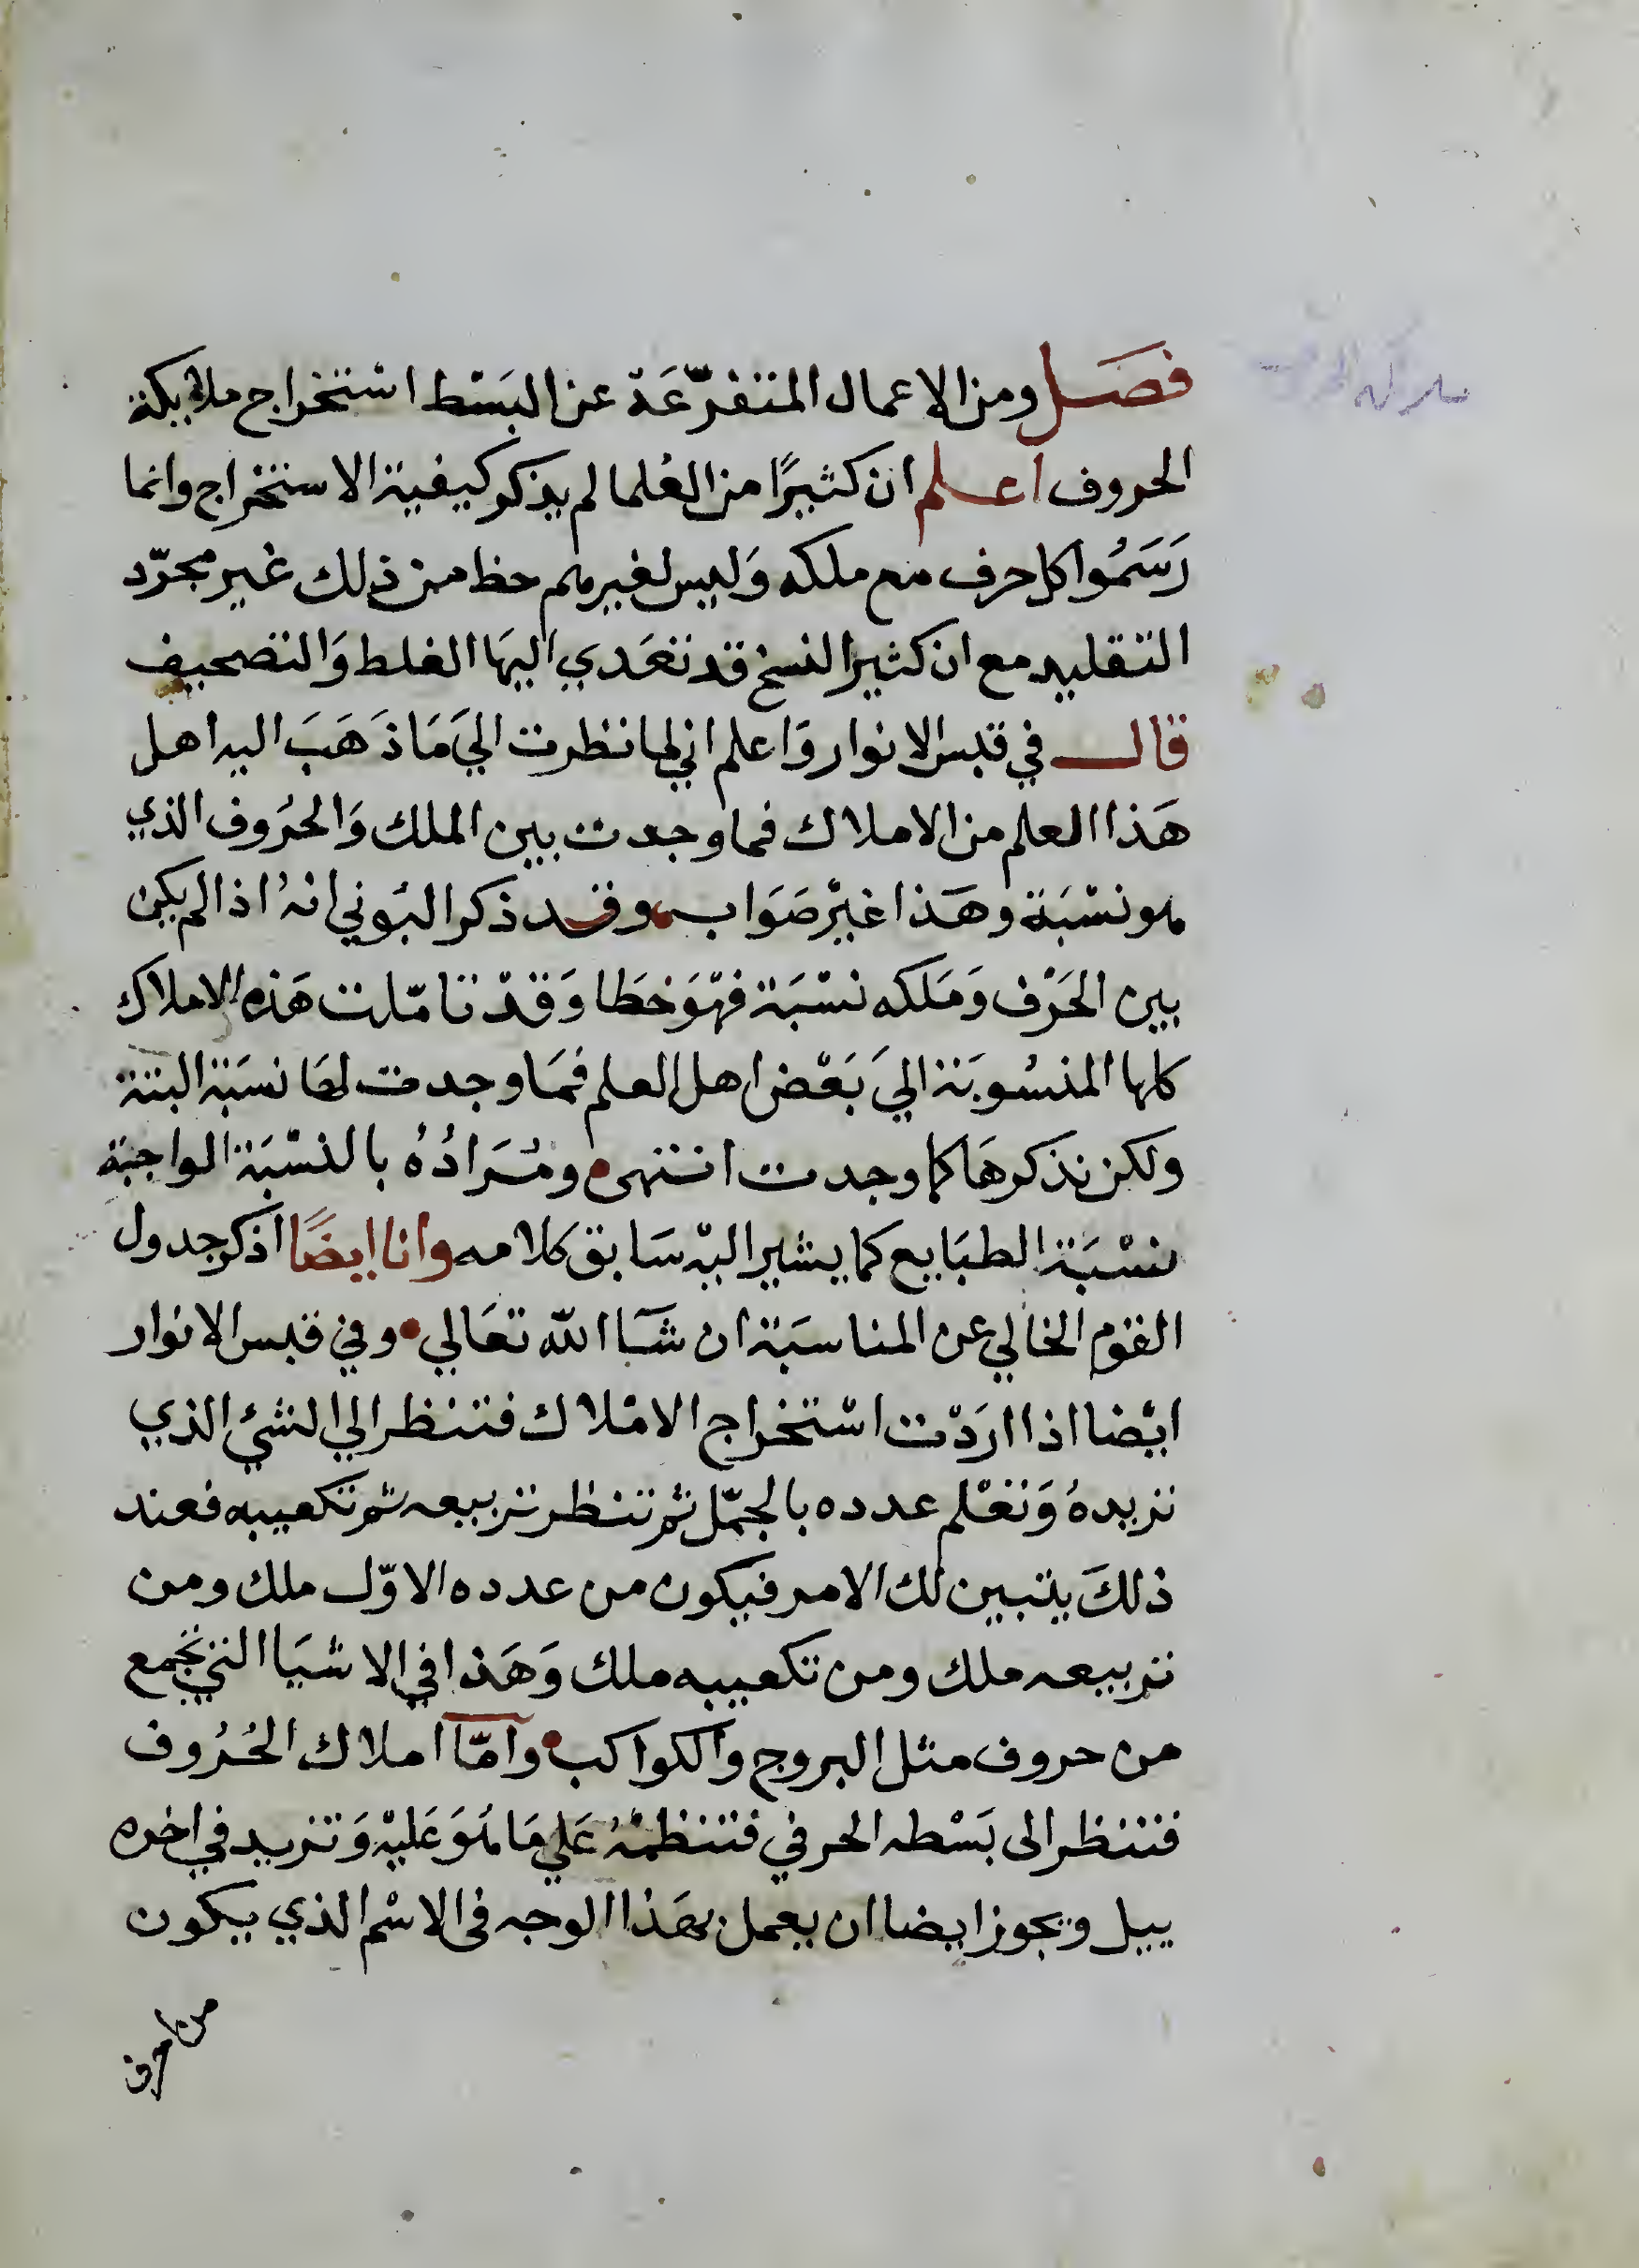 فصل ومن الاعمال المتفرّعَة عن البَسْط اسْتخراج ملايكة
الحروف اعلم ان كثيرًا من العُلما لم يذكر كيفية الاستخراج وانما
رَسَمُوا كل حرف مع ملكه وَليس لغيرهم حظ من ذلك غير مجرّد
التقليد مع ان كثير النسخ قد تعَدي اليهَا الغلط وَالتصحيف
قال في قبس الانوار وَاعلم اني لما نظرت اليَ مَا ذَهَبَ اليه اهل
هَذا العلم من الاملاك فما وجدت بين الملك وَالحرُوف الذي
هو نسْبَة وهَذا غيْر صَوَاب وقد ذكر البُوني انهُ اذا لم يكن
بين الحَرْف وَمَلكه نسْبَة فهْوَ خطَا وَقدْ تامّلت هَذه الاملاك
كلها المنسُوبَة اليَ بَعْض اهل العلم فمَا وجدت لهَا نسَبَة البتة
ولكن نذكرهَا كما وجدت انتهى ومُرَادُهُ بالنسْبَة الواجبَة
نسْبَة الطبَايع كما يشير اليْه سَابق كلامه وانا ايضًا اذكر جدول
القوم الخالي عن المناسبَة ان شآ الله تعَالي وفي قبس الانوار
ايْضا اذا ارَدْت اسْتخراج الامْلاك فتنظر الي الشئ الذي
تريدهُ وَتعْلم عدده بالجمّل ثم تنظر تربيعه ثم تكعيبه فعند
ذلكَ يتبين لك الامر فيكون من عدده الاوّل ملك ومن
تربيعه ملك ومن تكعيبه ملك وَهَذا في الاشيَا التي تجمع
من حروف مثل البروج والكواكب وامّا املاك الحُرُوف
فتنظر الى بَسْطه الحرفي فتنظمْهُ عَلي مَا هُوَ عَليْه وَتزيد في اخره
ييل ويجوز ايضا ان يعمل بهَذا الوجه فى الاسْم الذي يكون
من حرف